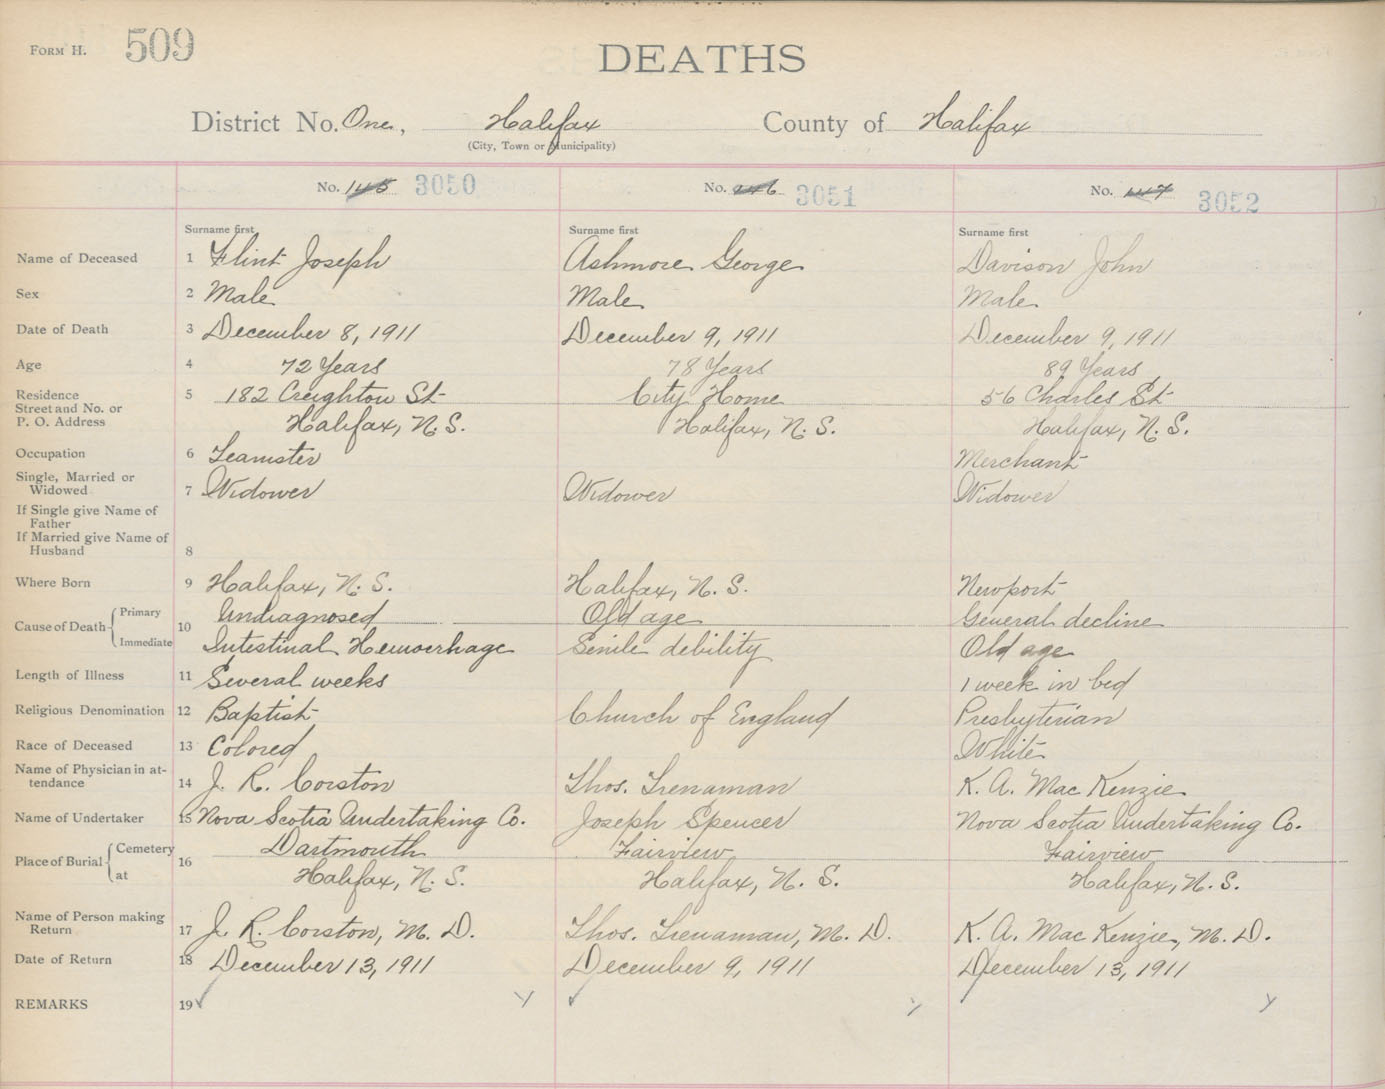 FORM H. 509
DEATHS
District No. One, Halifax County of Halifax
(City, Town or Municipality)
No. 3050 No. 3051 No. 3052
Surname first Surname first Surname first
Name of Deceased 1 Flint Joseph Ashmore George Davison John
Sex 2 Male Male Male
Date of Death 3 December 8, 1911 December 9, 1911 December 9, 1911
Age 4 72 Years 78 Years 89 Years
Residence 5 182 Creighton St City Home 56 Charles St
Street and No. or
P. O. Address Halifax, N.S. Halifax, N.S. Halifax, N.S.
Occupation 6 Teamster Merchant
Single, Married or
Widowed 7 Widower Widower Widower
If Single give Name of
Father
If Married give Name of
Husband 8
Where Born 9 Halifax, N.S. Halifax, N.S. Newport
Cause of Death Primary 10 Undiagnosed Old age General decline
Immediate Intestinal Hemoerhage Senile debility Old age
Length of Illness 11 Several weeks 1 week in bed
Religious Denomination 12 Baptist Church of England Presbyterian
Race of Deceased 13 Colored White
Name of Physician in at-
tendance 14 J. R. Corston Thos. Trenaman K. A. Mac Kenzie
Name of Undertaker 15 Nova Scotia Undertaking Co. Joseph Spencer Nova Scotia Undertaking Co.
Place of Burial Cemetery 16 Dartmouth Fairview Fairview
at Halifax, N.S. Halifax, N.S. Halifax, N.S.
Name of Person making
Return 17 J. R. Corston, M.D. Thos. Trenaman, M.D. K. A. Mac Kenzie, M.D.
Date of Return 18 December 13, 1911 December 9, 1911 December 13, 1911
REMARKS 19